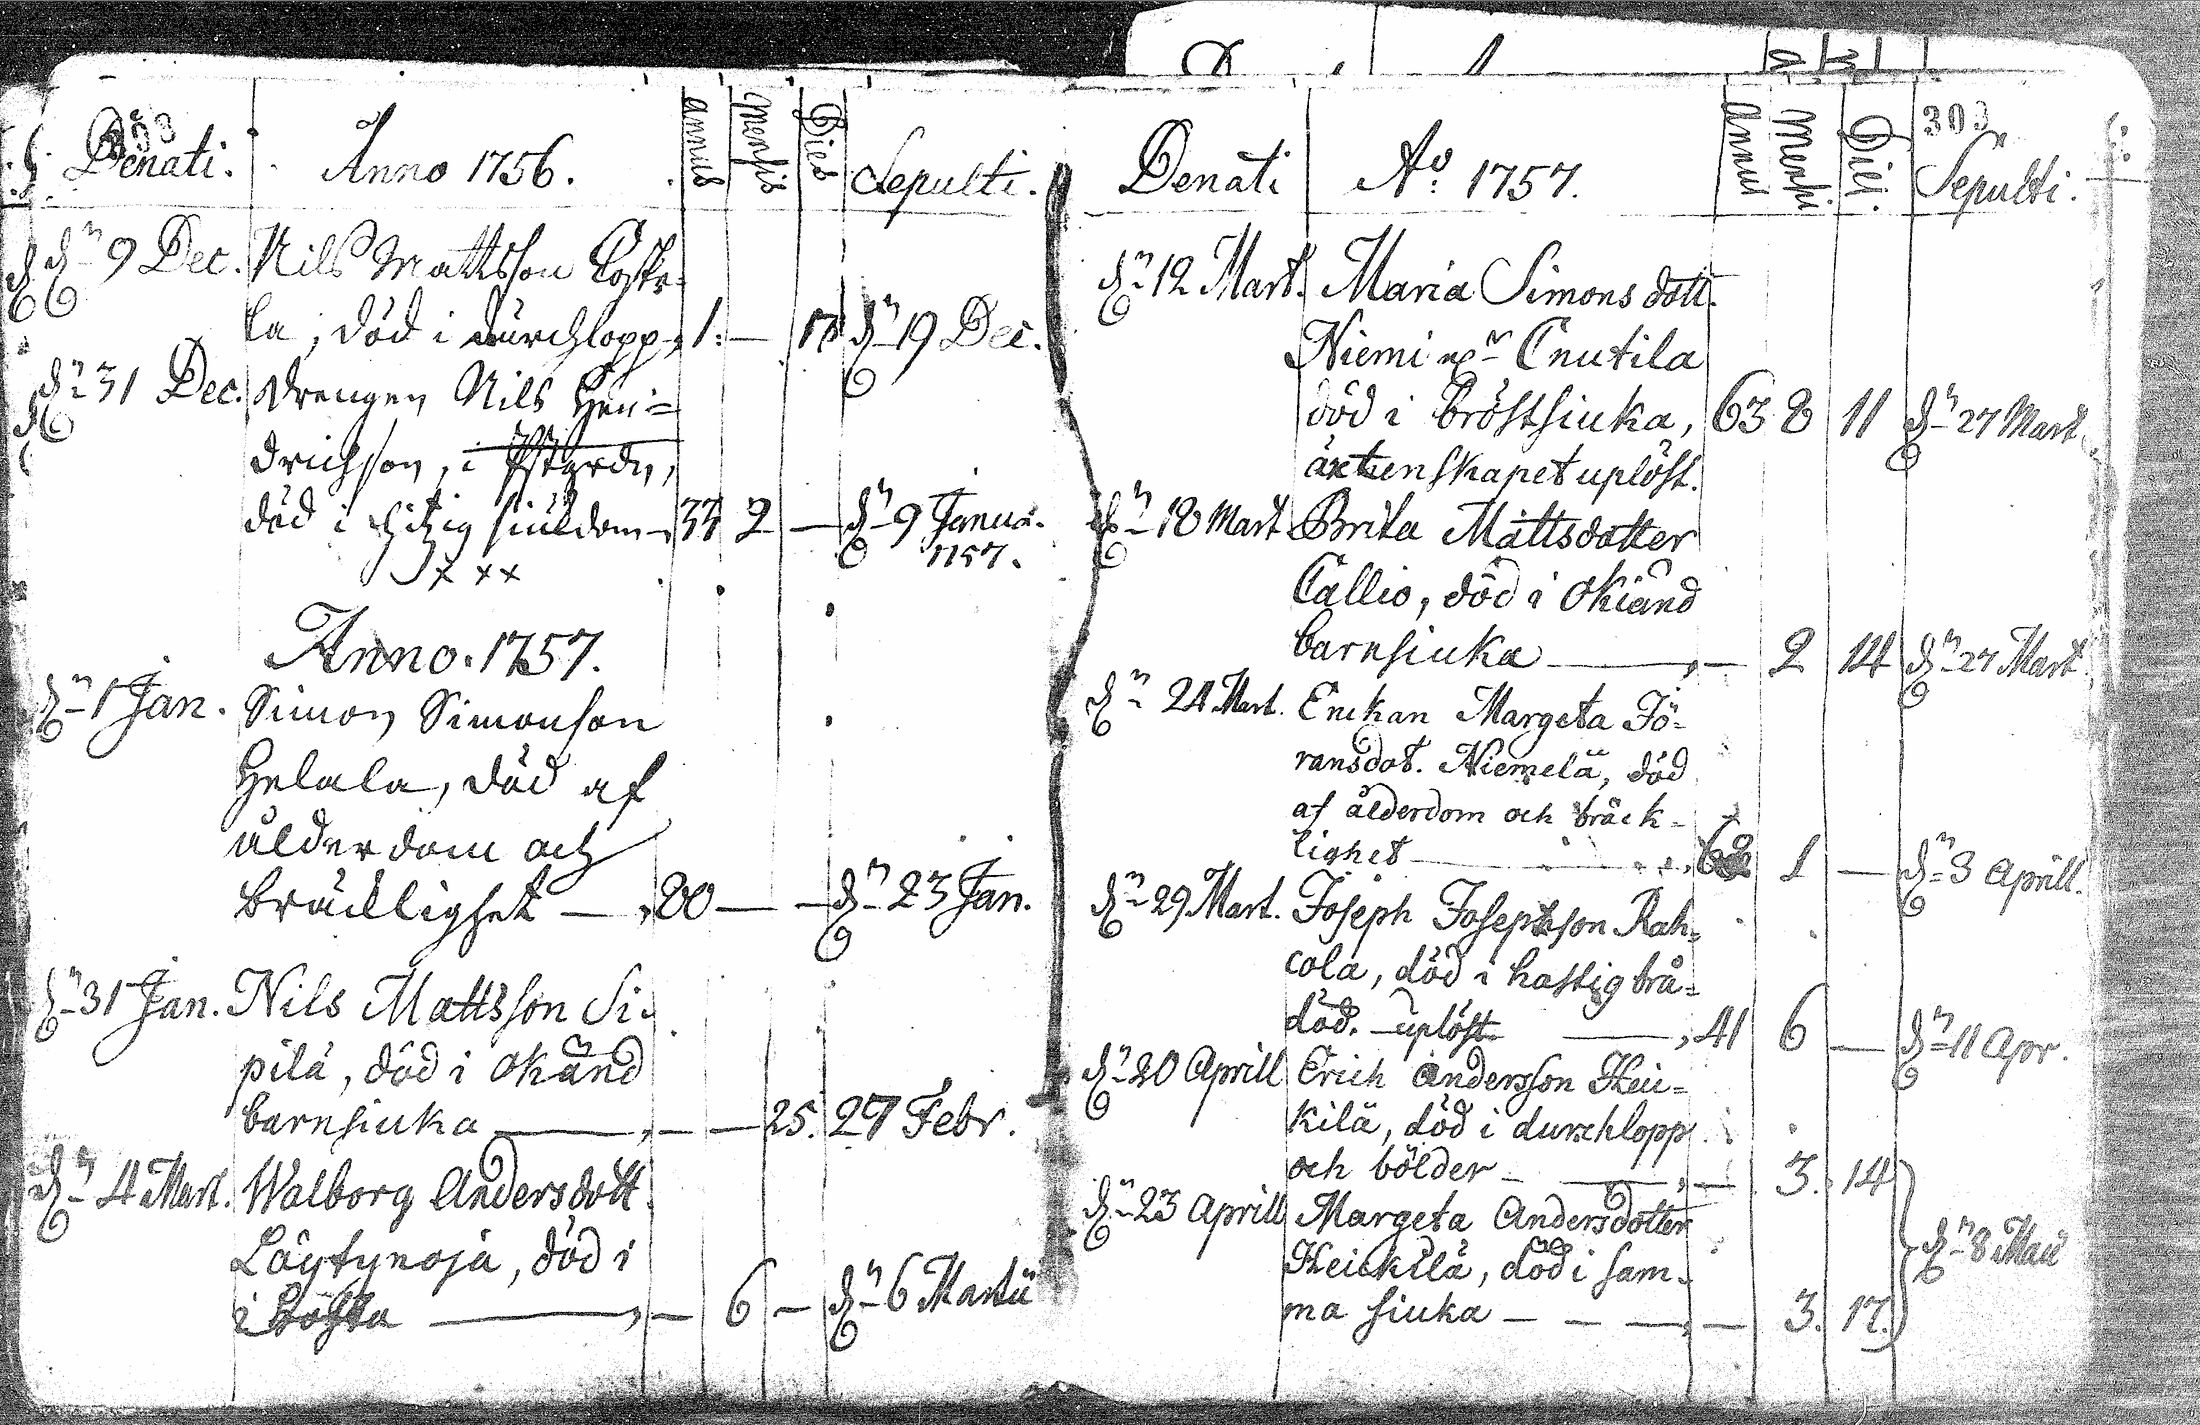 Denati.
Anno 1756.
annus
Mensis
Dies
Sepulti.
dn 9 Dec. Nils Mattsson
la, död i durchlopp, 1. — 17 dn 19 Dec.
dn 31 Dec. Drengen Nils Hen=
drichsson, i
död i hitzig siukdom 33 2 — dn 9 Janua.
1757.
Anno. 1757.
dn 1 Jan. Simon Simonsson
Helala, död af
ålderdom och
bräcklighet — 80 — — dn 23 Jan.
dn 31 Jan. Nils Mattsson Si=
pilä, död i okänd
barnsiuka — — — 25. 27 Febr.
dn 4 Mart. Walborg Andersdott.
Löytynoja, död i
i hosta — — 6 — dn 6 Martii
303
Denati
Ao. 1757.
annus
Mensis
Dies.
Sepulti.
dn 12 Mart. Maria Simonsdott.
Niemi Cnutila
död i bröstsiuka, 63 8 11 dn 27 Mart.
äctenskapet uplöst.
dn 18 Mart Brita Mattsdotter
Callio, död i okiänd
barnsiuka — — 2 14 dn 27 Mart
dn 24 Mart. Enckan Margeta Jö-
ransdot. Niemelä, död
af ålderdom och bräck-
lighet — 1 — dn 3 Aprill.
dn 29 Mart. Joseph Josephsson Rah=
cola, död i hastig brå=
död. uplöst — 41 6 — dn 11 Apr.
dn 20 Aprill Erich Andersson Hei=
kilä, död i durchlopp
och bölder — — 3. 14
dn 23 Aprill Margeta Andersdotter
Heickilä, död i sam-
ma siuka — — — — 3. 17. dn 8 Maii